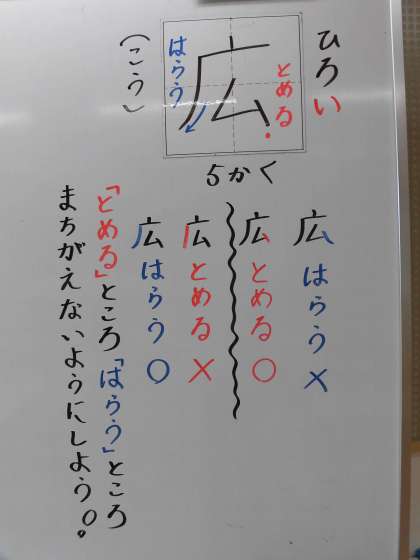 ひろい
広
とめる
はらう
(こう)
5かく
広はらう×
広とめる○
広とめる×
広はらう○
「とめる」ところ「はらう」ところ
まちがえないようにしよう。